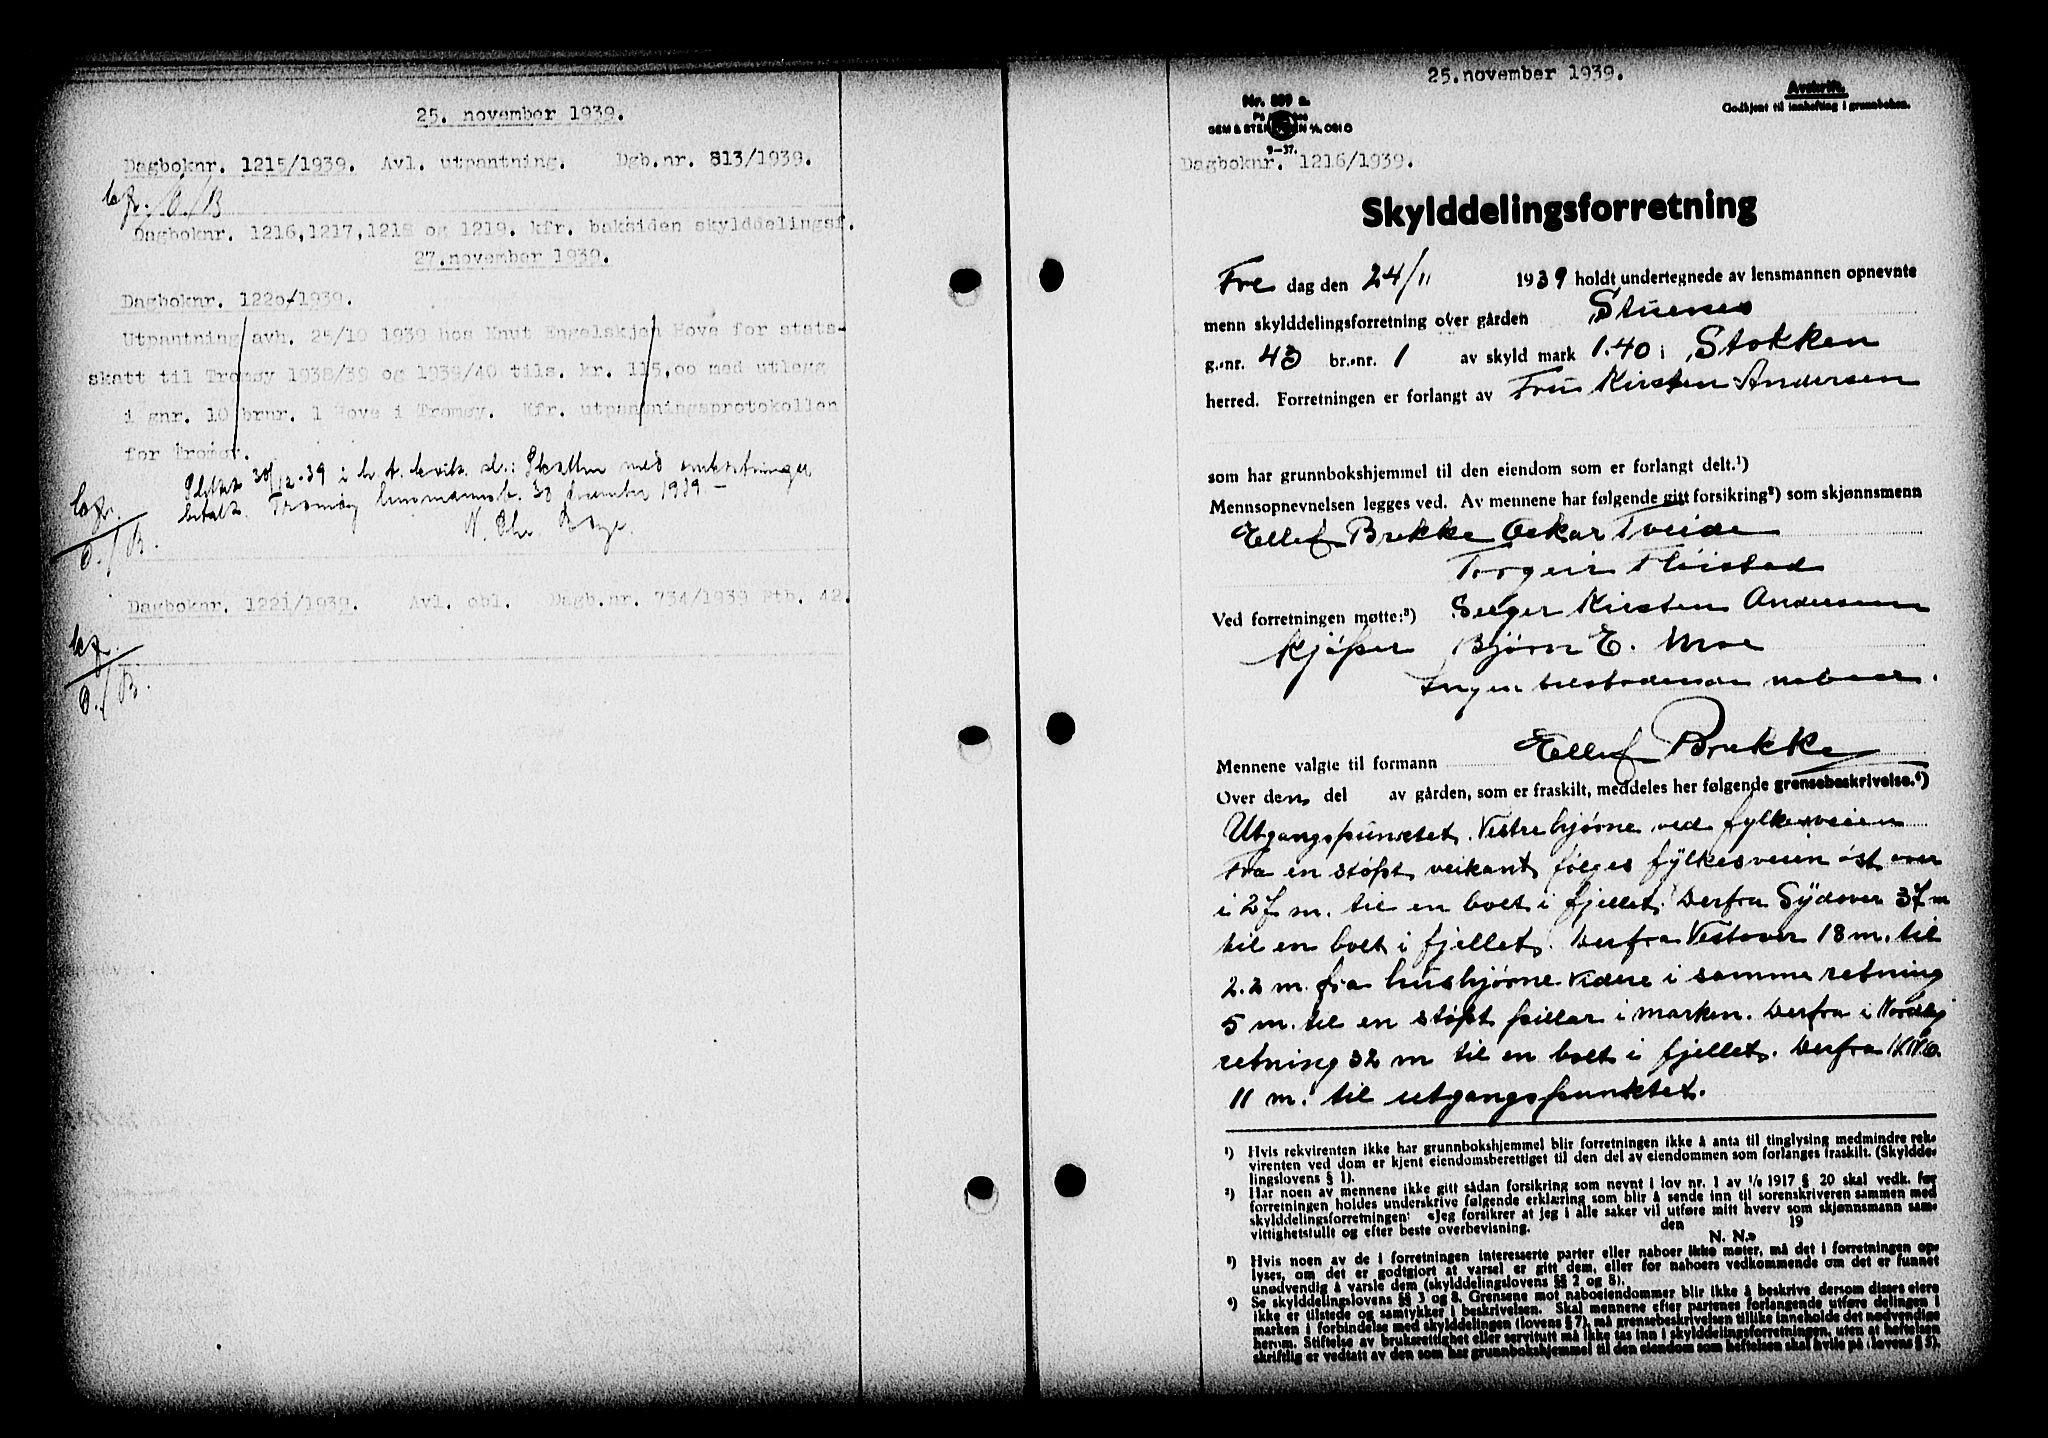 25. november 1939.
Dagboknr. 1215/1939. Avl. utpantning. Dgb.nr. 813/1939.
Dagboknr. 1216,1217,1218 og 1219. kfr. baksiden skylddelingsf.
27.november 1939.
Dagboknr. 1220/1939.
Utpantning avh. 25/10 1939 hos Knut Engelskjøn Hove for stats-
skatt til Tromøy 1938/39 og 1939/40 tils. kr. 115,00 med utlegg
i gnr. 10 brnr. 1 Hove i Tromøy. Kfr. utpantningsprotokollen
for Tromøy.
Slettet 30/12-39 i h. t. kvitt. sl.: Skatten med omkostninger
betalt. Tromøy lensmannsk. 30 desember 1939.-
Dagboknr. 1221/1939. Avl. obl. Dagb.nr. 734/1939 Ptb. 42.
25.november 1939.
Nr. 889 a.
SEM & STENERSEN A/S, OSLO
9-37.
Avskrift.
Godkjent til innhefting i grunnboken.
Dagboknr. 1216/1939.
Skylddelingsforretning
Fre dag den 24/11 1939 holdt undertegnede av lensmannen opnevnte
menn skylddelingsforretning over gården Stuenes
g.-nr. 43 br.-nr. 1 av skyld mark 1.40 i Stokken
herred. Forretningen er forlangt av Fru Kirsten Andersen
som har grunnbokshjemmel til den eiendom som er forlangt delt.¹)
Mennsopnevnelsen legges ved. Av mennene har følgende gitt forsikring²) som skjønnsmenn
Ellef Brekke Oskar Tveide
Torgeir Fløistad
Ved forretningen møtte:³) Selger Kirsten Andersen
kjøper Bjørn E. Moe
Ingen tilstødende naboer.
Mennene valgte til formann Ellef Brekke
Over den del av gården, som er fraskilt, meddeles her følgende grensebeskrivelse.⁴)
Utgangspunktet. Vestre hjørne ved fylkesveien
Fra en støpt veikant følges fylkesveien øst over
i 27 m. til en bolt i fjellet. Derfra Sydover 37 m
til en bolt i fjellet. Derfra Vestover 18 m. til
2.2 m. fra hushjørne videre i samme retning
5 m. til en støpt pillar i marken. Derfra i Nordlig
retning 32 m til en bolt i fjellet. Derfra
11 m. til utgangspunktet.
¹) Hvis rekvirenten ikke har grunnbokshjemmel blir forretningen ikke å anta til tinglysing medmindre rek-
virenten ved dom er kjent eiendomsberettiget til den del av eiendommen som forlanges fraskilt. (Skyldde-
lingslovens § 1).
²) Har noen av mennene ikke gitt sådan forsikring som nevnt i lov nr. 1 av 1/6 1917 § 20 skal vedk. før
forretningen holdes underskrive følgende erklæring som blir å sende inn til sorenskriveren sammen med
skylddelingsforretningen: «Jeg forsikrer at jeg i alle saker vil utføre mitt hverv som skjønnsmann sam-
vittighetsfullt og efter beste overbevisning. den 19
N. N.»
³) Hvis noen av de i forretningen interesserte parter eller naboer ikke møter, må det i forretningen op-
lyses, om det er godtgjort at varsel er gitt dem, eller for naboers vedkommende om det er funnet
unødvendig å varsle dem (skylddelingslovens §§ 2 og 8).
⁴) Se skylddelingslovens §§ 3 og 8. Grensene mot naboeiendommer blir ikke å beskrive dersom disses eiere
ikke er tilstede og samtykker i beskrivelsen. Skal mennene efter partenes forlangende utføre delingen i
marken i forbindelse med skylddelingen (lovens § 7), må grensebeskrivelsen tillike inneholde det nødvendige
herom. Stiftelse av bruksrettighet eller servitutt må ikke tas inn i skylddelingsforretningen, uten at heftelsen
skriftlig er vedtatt av den som har grunnbokshjemmel til den eiendom som heftelsen skal hvile på (lovens § 5).